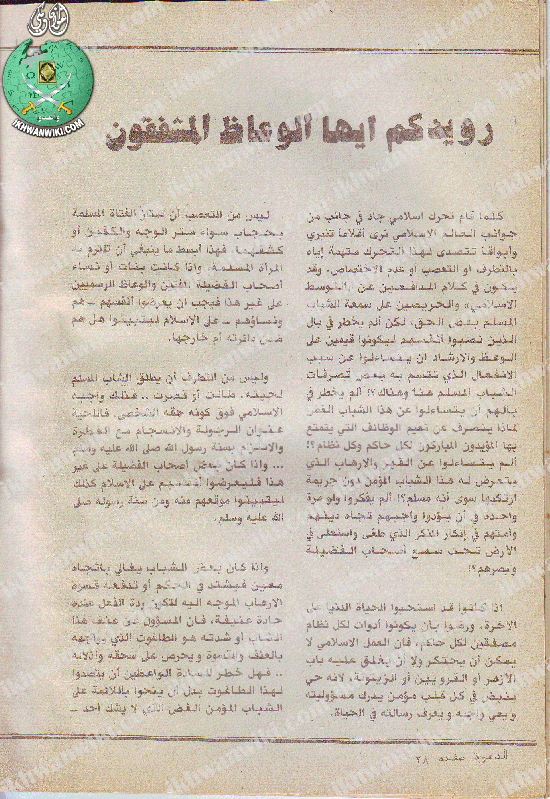 رويدكم ايها الوعاظ المتفقون
كلما قام تحرك اسلامي جاد في جانب من
جوانب العالم الاسلامي نرى أقلاما تنبري
وأبواقا تتصدى لهذا التحرك متهمة إياه
بالتطرف أو التعصب أو عدم الاختصاص. وقد
يكون في كلام المدافعين عن «التوسط
الاسلامي» والحريصين على سمعة الشباب
المسلم بعض الحق، لكن ألم يخطر في بال
الذين نصبوا أنفسهم ليكونوا قيمين على
الوعظ والارشاد ان يتساءلوا عن سبب
الانفعال الذي تتسم به بعض تصرفات
الشباب المسلم هنا وهناك؟! ألم يخطر في
بالهم أن يتساءلوا عن هذا الشباب الغض
لماذا ينصرف عن نعيم الوظائف التي يتمتع
بها المؤيدون المباركون لكل حاكم وكل نظام؟!
ألم يتساءلوا عن القهر والارهاب الذي
يتعرض له هذا الشباب المؤمن دون جريمة
ارتكبها سوى أنه مسلم؟! ألم يفكروا ولو مرة
واحدة في أن يؤدوا واجبهم تجاه دينهم
وأمتهم في إنكار المنكر الذي طغى واستعلى في
الأرض تحت سمع أصحاب الفضيلة
وبصرهم؟!
اذا كانوا قد استحبوا الحياة الدنيا على
الآخرة، ورضوا بأن يكونوا أدوات لكل نظام
مصفقين لكل حاكم، فان العمل الاسلامي لا
يمكن أن يحتكر ولا أن يغلق عليه باب
الأزهر أو القرويين أو الزيتونة، لانه حي
ينبض في كل قلب مؤمن يدرك مسؤوليته
ويعي واجبه ويعرف رسالته في الحياة.
ليس من التعصب أن تمتاز الفتاة المسلمة
بحجاب سواء ستر الوجه والكفين أو
كشفهما. فهذا أبسط ما ينبغي أن تلتزم به
المرأة المسلمة. واذا كانت بنات أو نساء
أصحاب الفضيلة المفتين والوعاظ الرسميين
على غير هذا فيجب ان يعرضوا أنفسهم - هم
ونساؤهم - على الاسلام ليتبينوا هل هم
ضمن دائرته أم خارجها.
وليس من التطرف أن يطلق الشاب المسلم
لحيته، طالت أو قصرت .. فذلك واجبه
الاسلامي فوق كونه حقه الشخصي. فاللحية
عنوان الرجولة والانسجام مع الفطرة
والالتزام بسنة رسول الله صلى الله عليه وسلم
... واذا كان بعض أصحاب الفضيلة على غير
هذا فليعرضوا أنفسهم على الاسلام كذلك
ليتبينوا موقعهم منه ومن سنة رسوله صلى
الله عليه وسلم.
واذا كان بعض الشباب يغالي باتجاه
معين فيشتد في الحكم أو تدفعه قسوة
الارهاب الموجه اليه لتكون ردة الفعل عنده
حادة عنيفة، فان المسؤول عن عنف هذا
الشاب أو شدته هو الطاغوت الذي يواجهه
بالعنف والقسوة ويحرص على سحقه وإذلاله
.. فهل خطر للسادة الواعظين أن يتصدوا
لهذا الطاغوت بدل أن ينحوا باللائمة على
الشباب المؤمن الغض الذي لا يشك أحد -
الدعوة صفحة ٢٨
IKHWANWIKI.COM